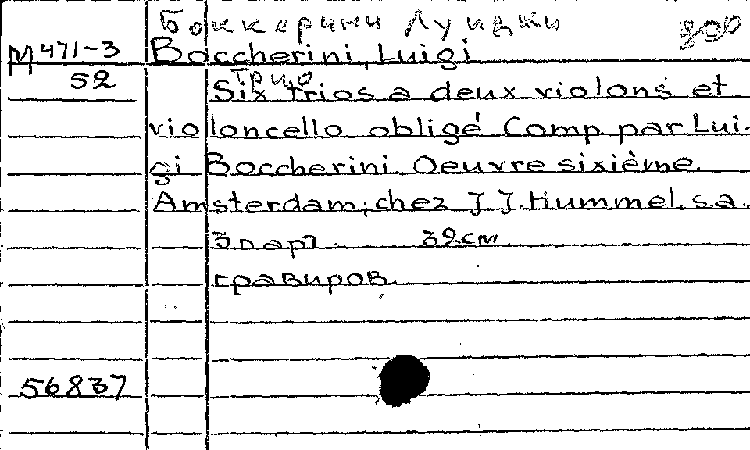 Боккерини Луиджи
М 471-3 Boccherini, Luigi
52 Трио
Six trios a deux violons et
violoncello obligé Comp par Lui-
gi Boccherini. Oeuvre sixième.
Amsterdam, chez J. J. Hummel. s.a.
3 парт. 32 см
гравиров.
56837